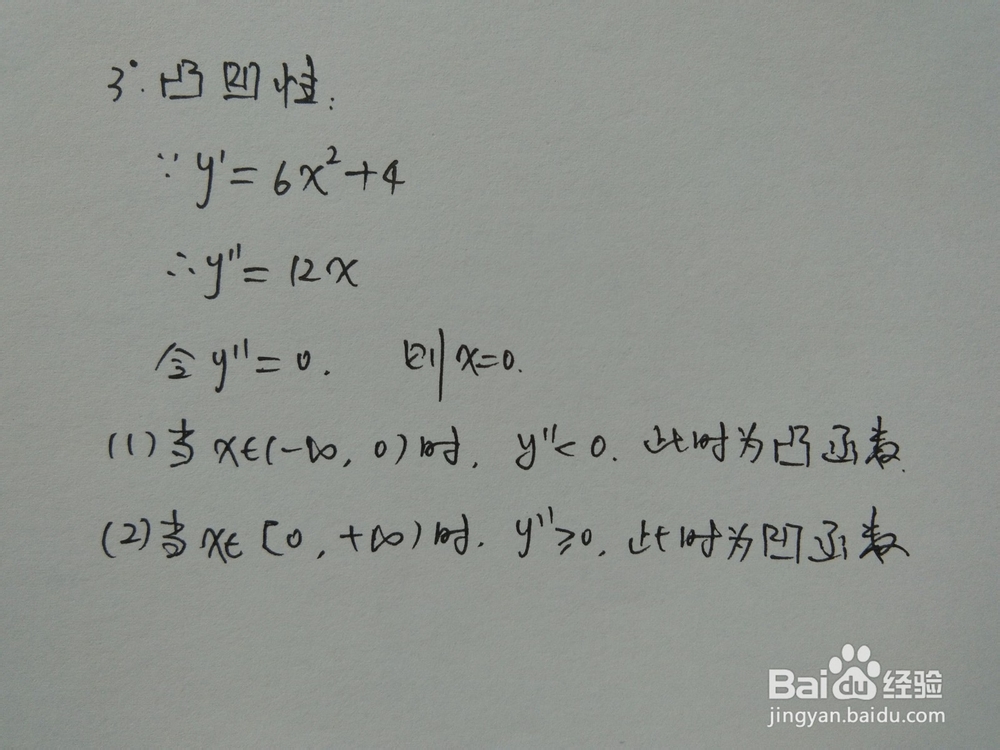 3°. 凸凹性:
∵ y' = 6x²+4
∴ y'' = 12x
令 y'' = 0. 则 x=0.
(1) 当 x∈(-∞, 0) 时, y''< 0. 此时为凸函数.
(2) 当 x∈ [0, +∞) 时. y''≥0, 此时为凹函数
Baidu 经验
jingyan.baidu.com